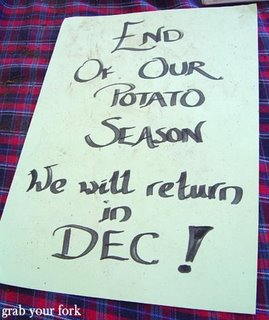 END
OF OUR
POTATO
SEASON
We will return
in
DEC !
grab your fork